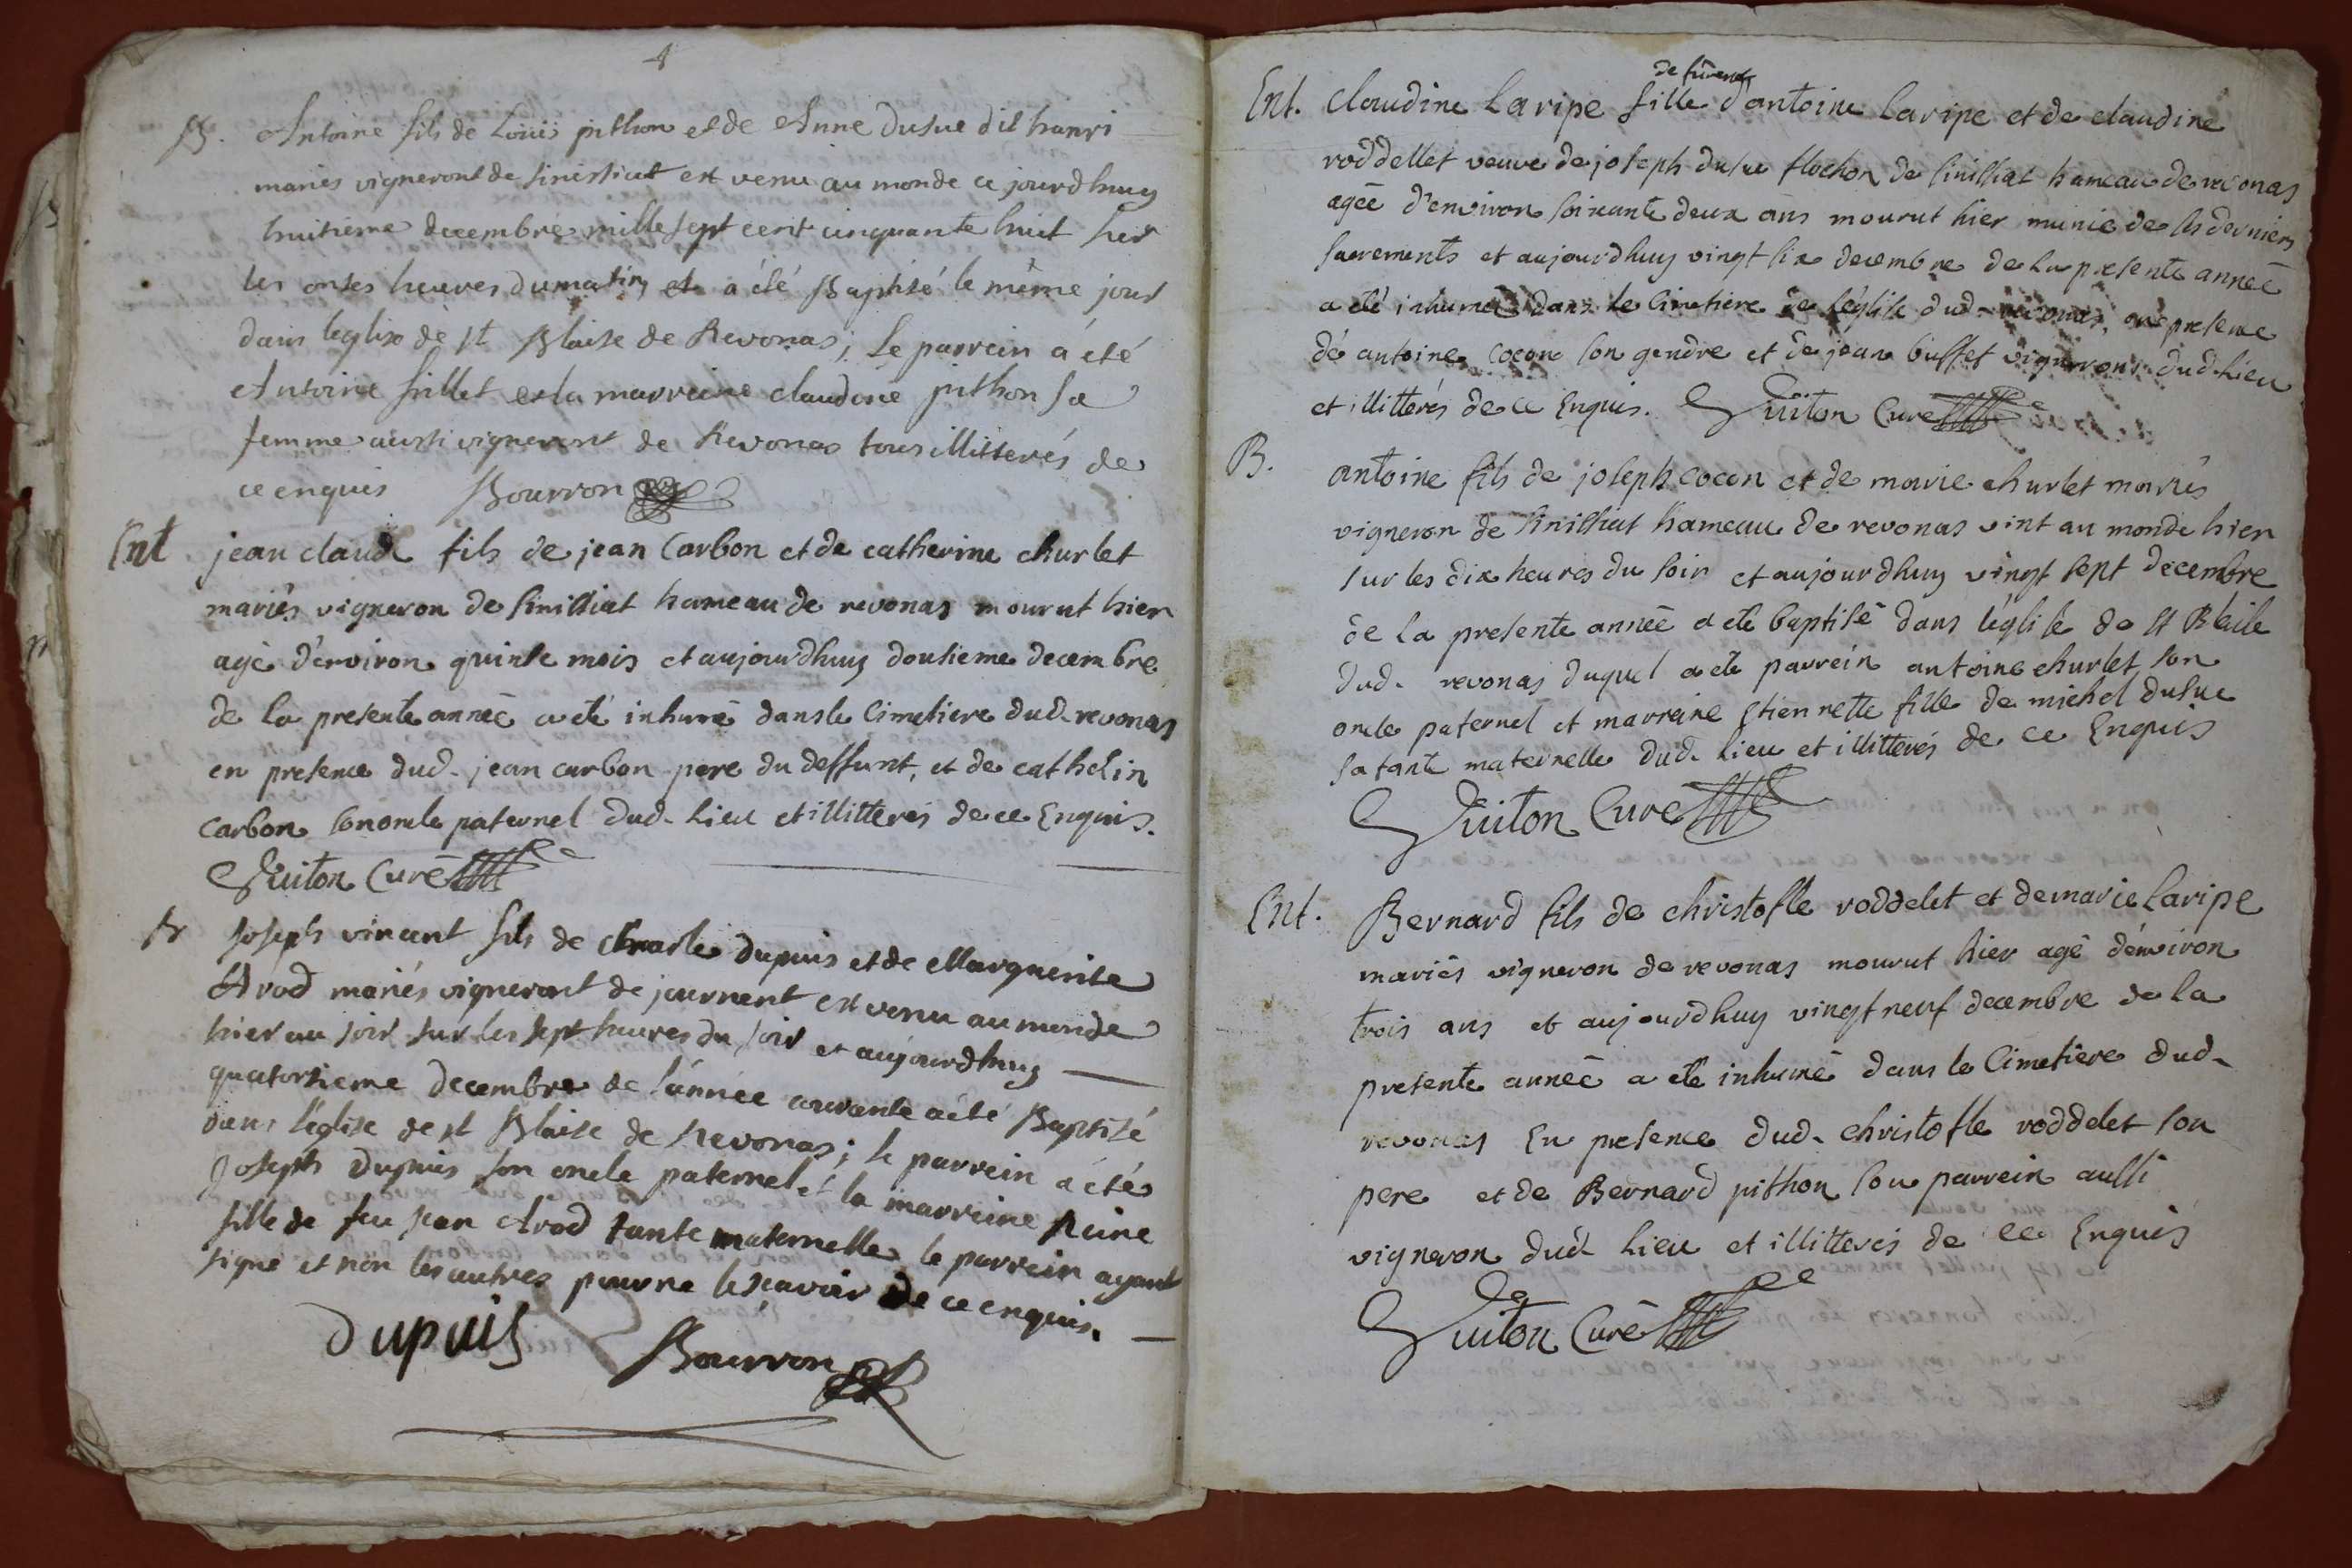 4
B. Antoine fils de Louis pithon et de Anne Dusuc dit hanri
mariés vigneront de sinissiat est venu au monde ce jourdhuy
huitième decembre mille sept cent cinquante huit sur
les onses heures du matin et a été Baptisé le même jour
dans leglise de st Blaise de Revonas; Le parrein a été
Antoine sillet et la marreine claudine pithon sa
femme aussi vigneront de Revonas tous illitterés de
ce enquis Bourron
Ent jean claude fils de jean Carbon et de catherine churlet
mariés vigneron de sinissiat hameau de revonas mourut hier
agé d'environ quinse mois et aujourdhuy dousieme decembre
de la presente année a eté inhumé dans le Cimetiere dud. revonas
en presence dud. jean carbon pere du deffunt, et de cathelin
Carbon son oncle paternel dud. Lieu et illitterés de ce Enquis.
Guiton Curé
B Joseph vincent fils de charle Dupuis et de Marguerite
Arod mariés vigneront de journent est venu au monde
hier au soir sur les sept heures du soir et aujourdhuy
quatorsieme decembre de l'année courante a été Baptisé
dans l'eglise de st Blaise de Revonas; le parrein a été
Joseph Dupuis son oncle paternel et la marreine Reine
fille de feu jean Arod tante maternelle le parrein ayant
signé et non les autres pour ne le sçavoir de ce enquis.
Dupuis Bourron
de furent
Ent. Claudine Laripe fille d'antoine Laripe et de claudine
roddellet veuve de joseph dusuc flochon de sinissiat hameau de revonas
agée d'environ soixante deux ans mourut hier munie de ses derniers
sacrements et aujourdhuy vingt six decembre de la presente année
a eté inhumée dans le Cimetiere de l'église dud. revonas, en presence
de antoine cocon son gendre et de jean buffet vignerons dud. Lieu
et illitterés de ce Enquis. Guiton Curé
B. antoine fils de joseph cocon et de marie churlet mariés
vigneron de sinissiat hameau de revonas vint au monde hier
sur les dix heures du soir et aujourdhuy vingt sept decembre
de la presente année a eté baptisé dans l'église de st Blaise
dud. revonas duquel a eté parrein antoine churlet son
oncle paternel et marreine Etiennette fille de michel dusuc
sa tante maternelle dud. Lieu et illitterés de ce Enquis
Guiton Curé
Ent. Bernard fils de christofle roddelet et de marie Laripe
mariés vigneron de revonas mourut hier agé d'environ
trois ans et aujourdhuy vingt neuf decembre de la
presente année a eté inhumé dans le Cimetiere dud.
revonas En presence dud. christofle roddelet son
pere et de Bernard pithon son parrein aussi
vigneron dud. Lieu et illitterés de ce Enquis
Guiton Curé